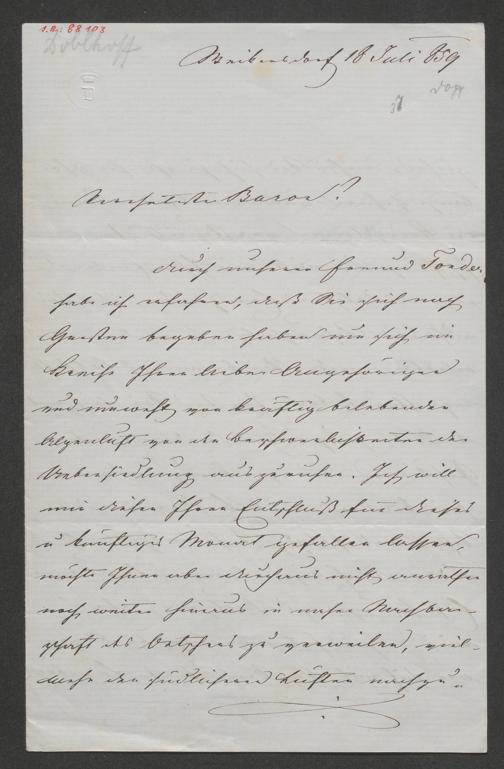 I.N. 68103
Doblhoff
18 Juli 859
Verehrtester Baron!
durch unseren Freund
habe ich erfahren, daß Sie sich nach
begeben haben um sich im
Kreise Ihrer lieben Angehörigen
und umweht von kräftig belebender
Alpenluft von den Beschwerlichkeiten der
Uebersiedlung auszuruhen. Ich will
mir diesen Ihren Entschluß für dieses
u künftiges Monat gefallen lassen,
möchte Ihnen aber durchaus nicht anrathen
noch weiter hinaus in unser Nachbar-
schaft des Oetschers zu verweilen, viel-
mehr den südlicheren Lüften nachzu-